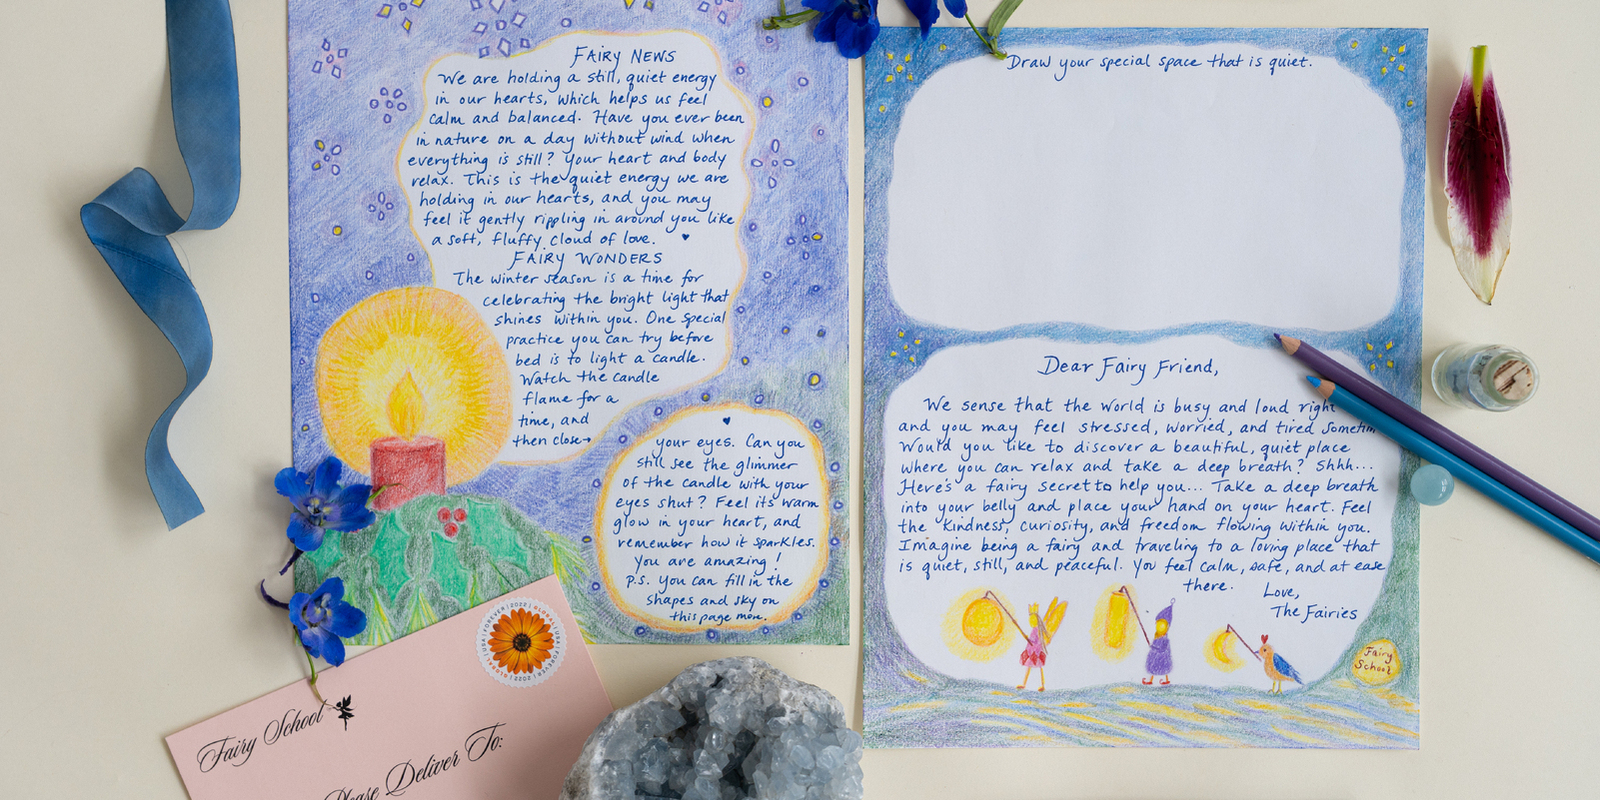 FAIRY NEWS
We are holding a still, quiet energy
in our hearts, which helps us feel
calm and balanced. Have you ever been
in nature on a day without wind when
everything is still? Your heart and body
relax. This is the quiet energy we are
holding in our hearts, and you may
feel it gently rippling in around you like
a soft, fluffy cloud of love.
FAIRY WONDERS
The winter season is a time for
celebrating the bright light that
shines within you. One special
practice you can try before
bed is to light a candle.
Watch the candle
flame for a
time, and
then close→
your eyes. Can you
still see the glimmer
of the candle with your
eyes shut? Feel its warm
glow in your heart, and
remember how it sparkles.
You are amazing!
P.S. You can fill in the
shapes and sky on
this page more.
Draw your special space that is quiet.
Dear Fairy Friend,
We sense that the world is busy and loud right
and you may feel stressed, worried, and tired
Would you like to discover a beautiful, quiet place
where you can relax and take a deep breath? Shhh...
Here's a fairy secret to help you... Take a deep breath
into your belly and place your hand on your heart. Feel
the kindness, curiosity, and freedom flowing within you.
Imagine being a fairy and traveling to a loving place that
is quiet, still, and peaceful. You feel calm, safe, and at ease
there. Love,
The Fairies
Fairy
School
GLOBAL USA FOREVER 2022 GLOBAL USA FOREVER 2022
Fairy School
Please Deliver To: